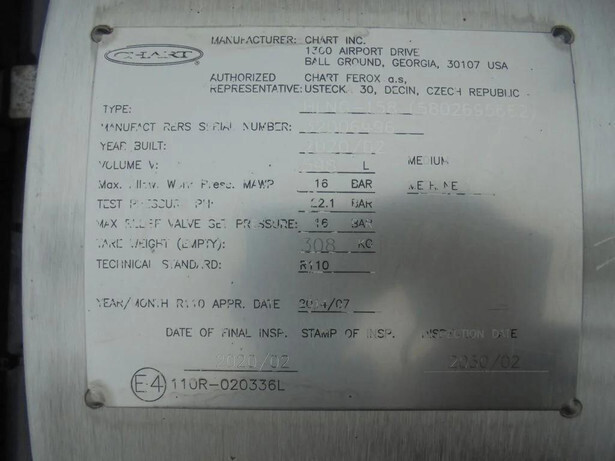 CHART
MANUFACTURER: CHART INC.
1300 AIRPORT DRIVE
BALL GROUND, GEORGIA, 30107 USA
AUTHORIZED CHART FEROX a.s,
REPRESENTATIVE: USTECK. 30, DECIN, CZECH REPUBLIC
TYPE:
MANUFACTURERS SERIAL NUMBER:
YEAR BUILT: 2020/02
VOLUME V: L MEDIUM
Max. Allow. Work Press. MAWP 16 BAR METHANE
TEST PRESSURE PH: 22.1 BAR
MAX RELIEF VALVE SET PRESSURE: 16 BAR
TARE WEIGHT (EMPTY): 308 KG
TECHNICAL STANDARD: R110
YEAR/MONTH R110 APPR. DATE 2014/07
DATE OF FINAL INSP. STAMP OF INSP. INSPECTION DATE
2020/02 2030/02
E4 110R-020336L